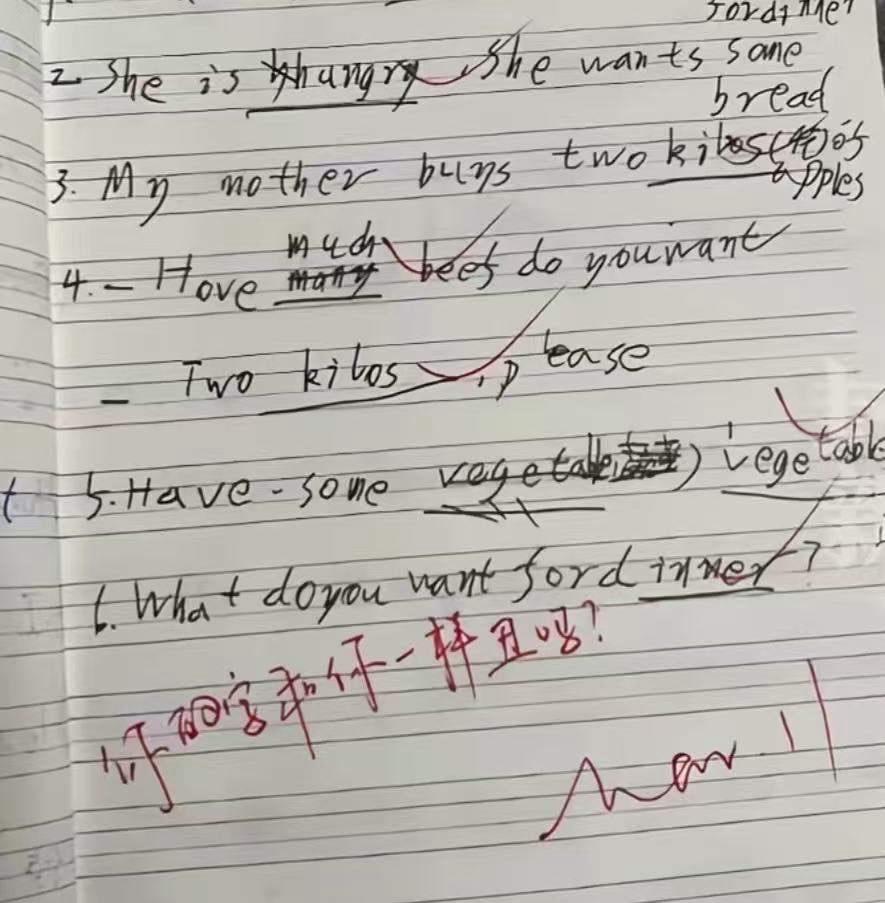 for di me?
2. She is hungry She wants some
bread
3. My mother buys two kibos(花)of
apples
4. - Hove much beef do you want
many
- Two kibos, please
5. Have some vegetable) vegetable
6. What do you want for dinner?
你的字和你一样丑吗?
Mar. 11